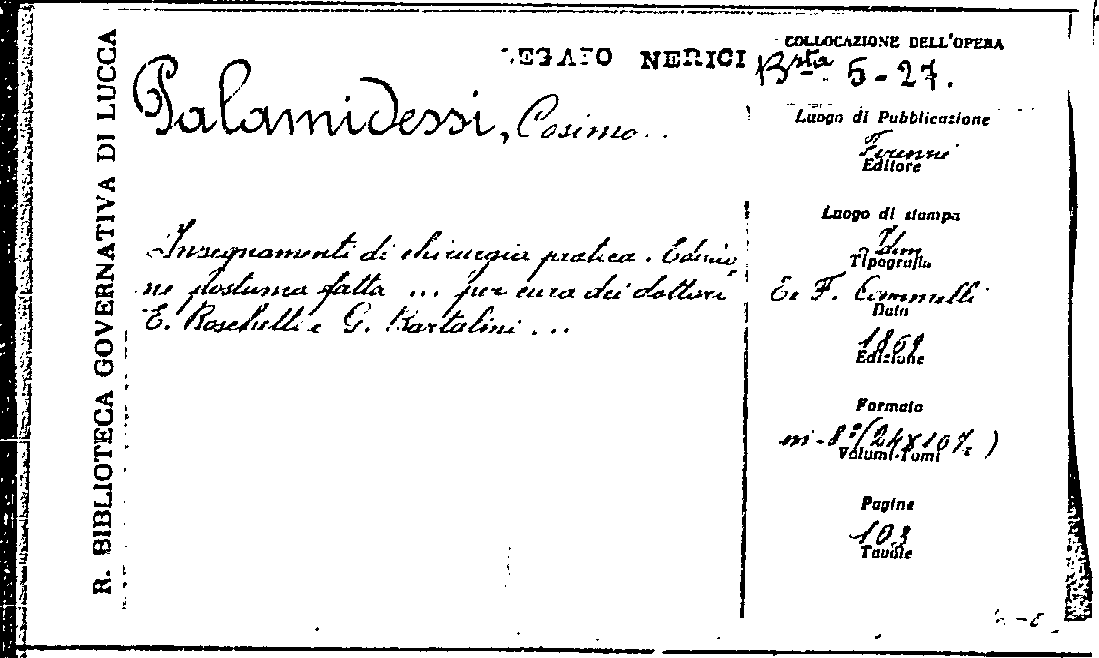 R. BIBLIOTECA GOVERNATIVA DI LUCCA
LEGATO NERICI
COLLOCAZIONE DELL'OPERA
Bsta 5-27.
Palamidessi, Cosimo..
Insegnamenti di chirurgia pratica. Edizio
ne postuma fatta ... per cura dei dottori
E. Roschetti e G. Bartalini ...
Luogo di Pubblicazione
Firenze
Editore
Luogo di stampa
Idem
Tipografia
E. F.
Data
1869
Edizione
Formato
in-8°
Volumi-Tomi
Pagine
103
Tavole